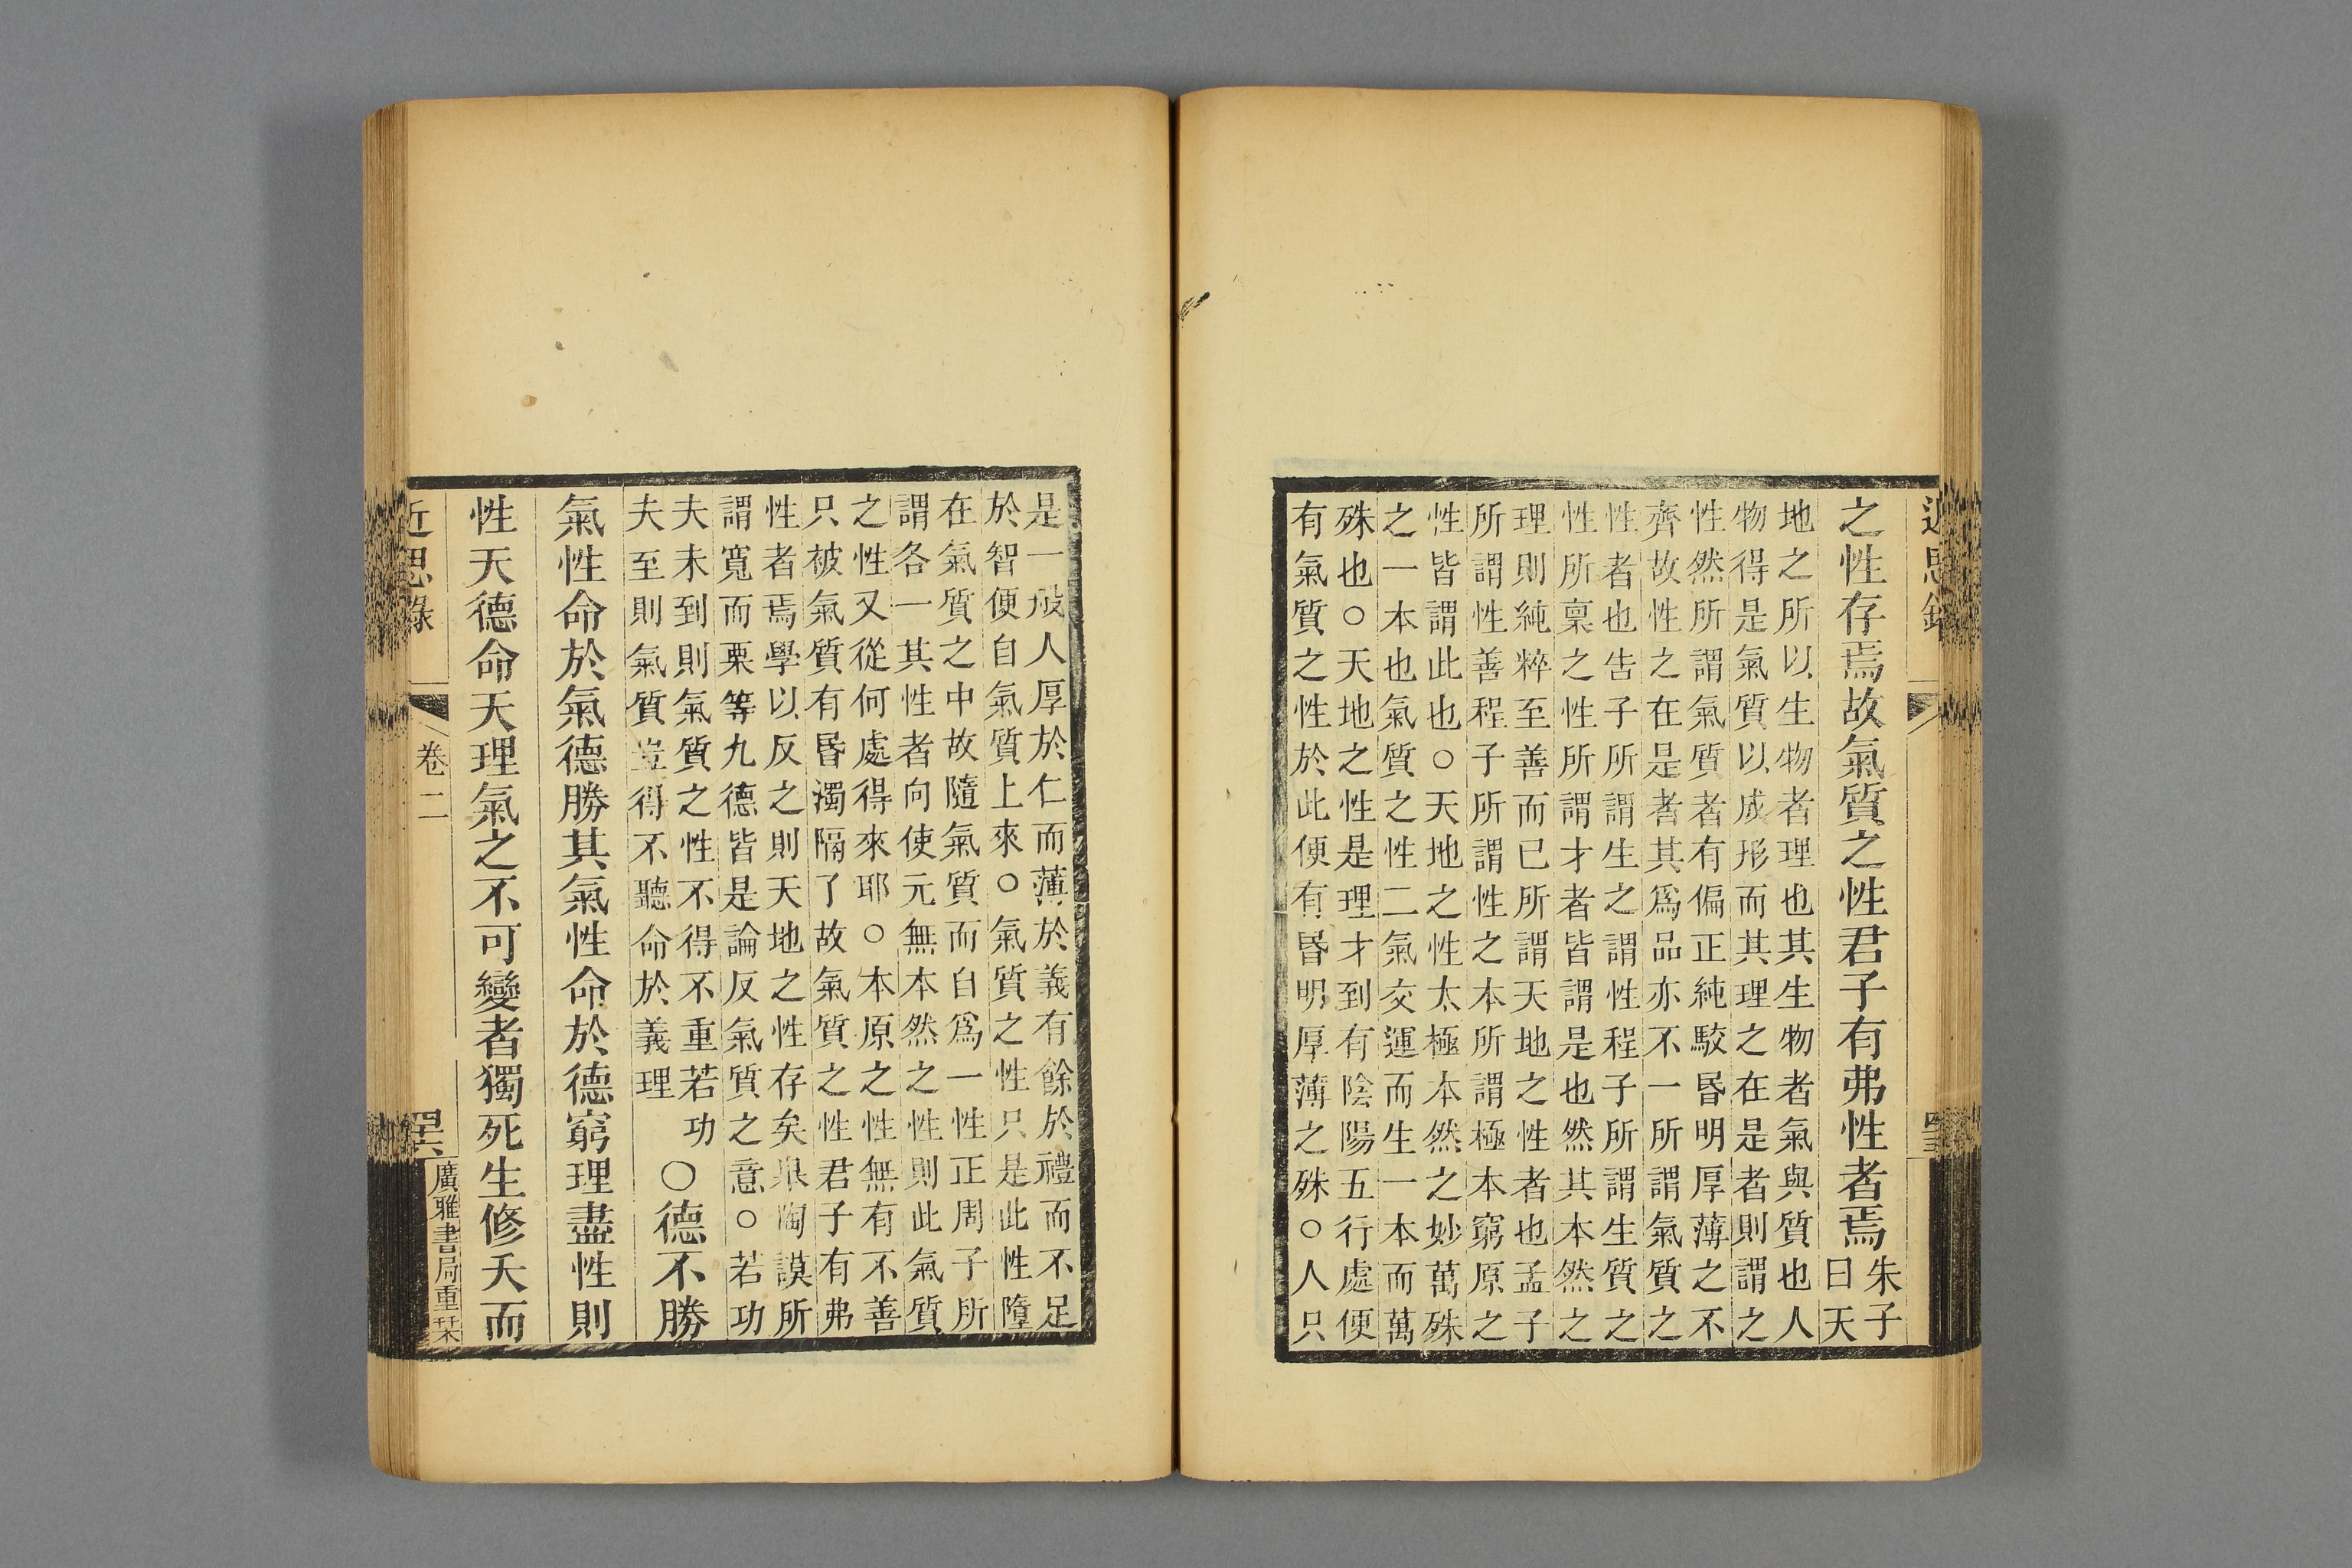 之性存焉故氣質之性君子有弗性者焉
朱子
曰天
地之所以生物者理也其生物者氣與質也人
物得是氣質以成形而其理之在是者則謂之
性然所謂氣質者有偏正純駁昏明厚薄之不
齊故性之在是者其爲品亦不一所謂氣質之
性者也告子所謂生之謂性程子所謂生質之
性所稟之性所謂才者皆謂是也然其本然之
理則純粹至善而已所謂天地之性者也孟子
所謂性善程子所謂性之本所謂極本窮原之
性皆謂此也○天地之性太極本然之妙萬殊
之一本也氣質之性二氣交運而生一本而萬
殊也○天地之性是理才到有陰陽五行處便
有氣質之性於此便有昏明厚薄之殊○人只
是一般人厚於仁而薄於義有餘於禮而不足
於智便自氣質上來○氣質之性只是此性墮
在氣質之中故隨氣質而自爲一性正周子所
謂各一其性者向使元無本然之性則此氣質
之性又從何處得來耶○本原之性無有不善
只被氣質有昏濁隔了故氣質之性君子有弗
性者焉學以反之則天地之性存矣皋陶謨所
謂寬而栗等九德皆是論反氣質之意○若功
夫未到則氣質之性不得不重若功
夫至則氣質豈得不聽命於義理
○德不勝
氣性命於氣德勝其氣性命於德窮理盡性則
性天德命天理氣之不可變者獨死生修夭而
近思錄
卷二
廣雅書局重栞